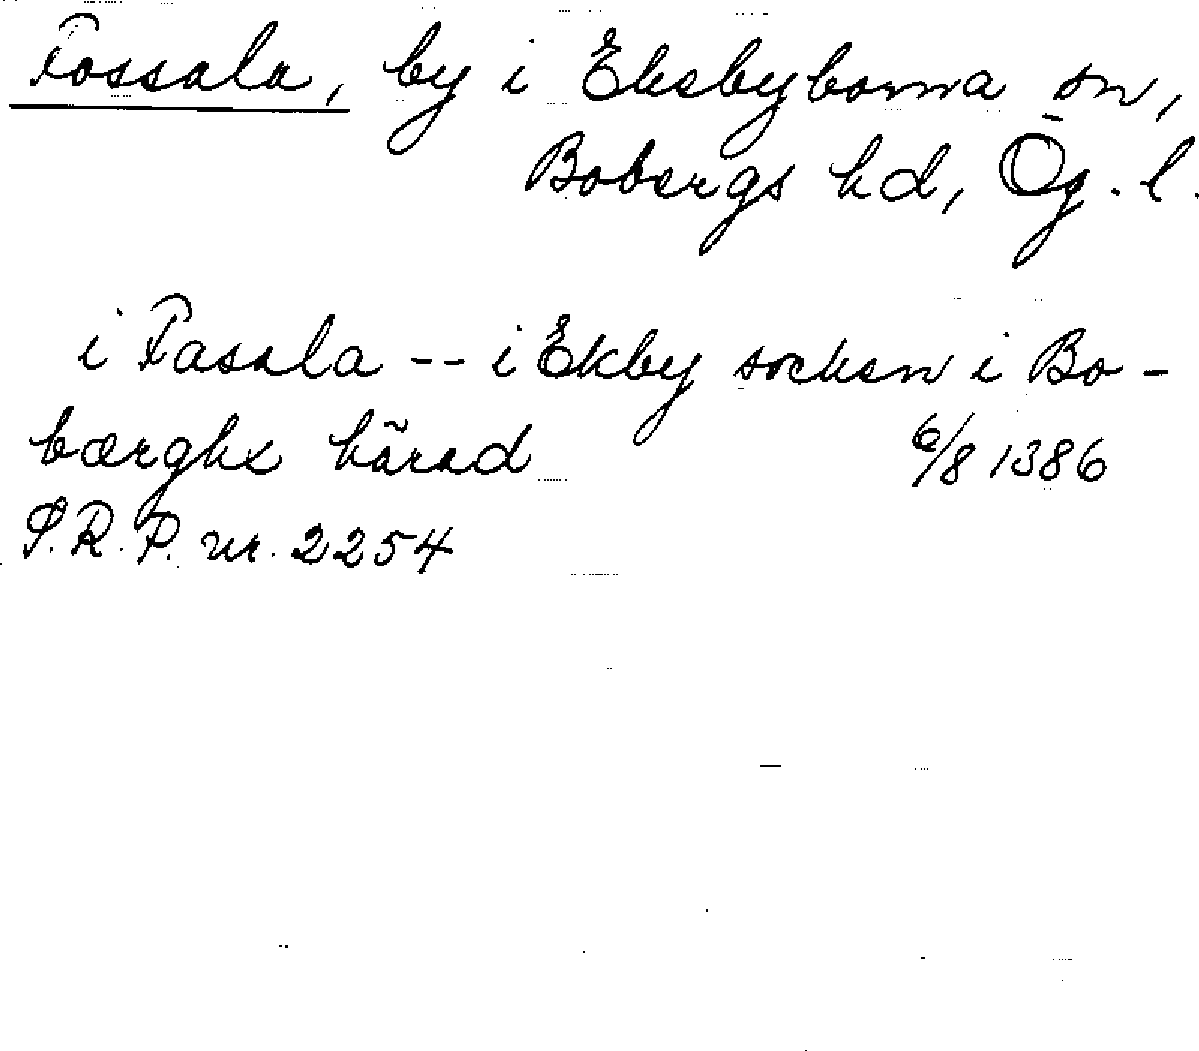 Fossala, by i Ekebyborna sn,
Bobergs hd, Ög. l.
i Fasala -- i Ekby sochen i Bo-
bærghx härad 6/8 1386
S.R.P. nr. 2254